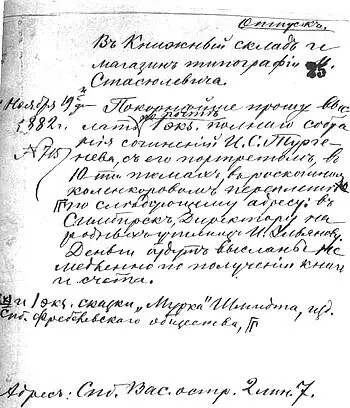 Отпускъ.
Въ Книжный складъ и
магазинъ типографіи М.
Стасюлевича.
Ноября 19 дня
1882 г.
Покорнѣйше прошу выс
лать 1 экз. полнаго собра
нія сочиненій И. С. Турге
нева, съ его портретомъ, въ
10-ти томахъ, въ роскошномъ
коленкоровомъ переплетѣ
по слѣдующему адресу: въ
Симбирскъ, Директору на
родныхъ училищъ И. Ульянову.
Деньги будутъ высланы не
медленно по полученіи книги
и счета.
и 1 экз. сказки „Мурка" Шмидта, изд.
Спб. Фребелевскаго общества,
Адресъ: Спб. Вас. остр. 2 лин. 7.